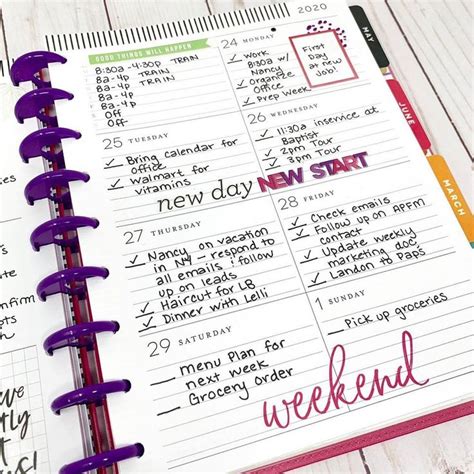 2020
GOOD THINGS WILL HAPPEN
8:30a - 4:30p TRAIN
8a-4p TRAIN
8a-4p TRAIN
8a-4p
8a-4p
Off
24 MONDAY
✓ Work
8:30a w/
Nancy
✓ Organize
Office
✓ Prep Week
First
Day
at new
Job!
25 TUESDAY
✓ Bring calendar for
office
✓ Walmart for
vitamins
26 WEDNESDAY
✓ 11:30a inservice at
Baptist
✓ 2pm Tour
✓ 3pm Tour
new day NEW START
27 THURSDAY
✓ Nancy on vacation
in NY - respond to
all emails & follow
up on leads
✓ Haircut for LB
✓ Dinner with Lelli
28 FRIDAY
✓ Check emails
✓ Follow up on APFM
contact
✓ Update weekly
marketing doc
✓ Landon to Pap's
29 SATURDAY
menu Plan for
next week
Grocery order
1 SUNDAY
Pick up groceries
weekend
MAY
JUNE
MARCH